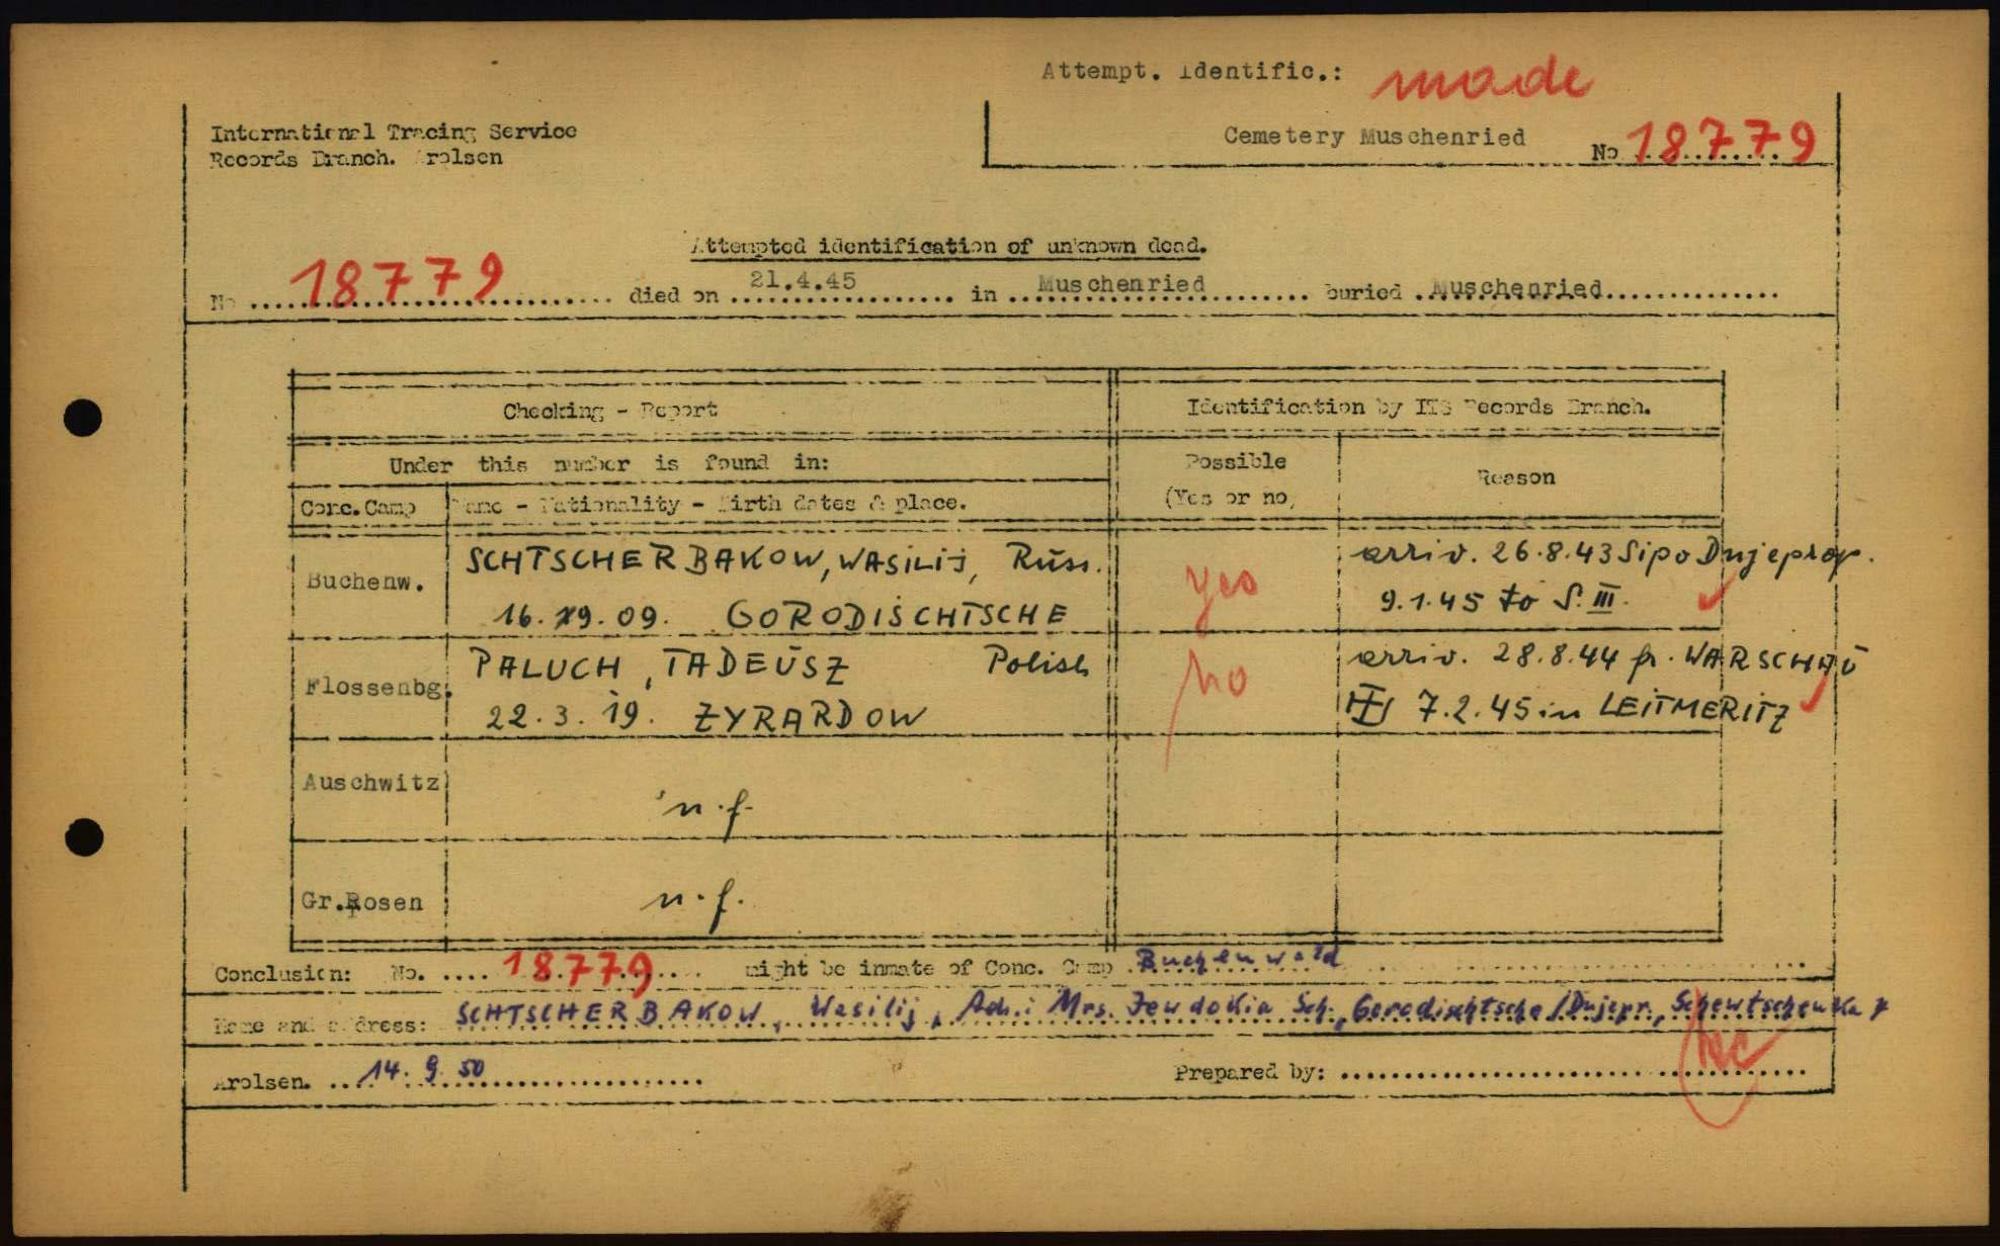 Attempt. Identific.: made
International Tracing Service
Records Branch. Arolsen
Cemetery Muschenried
No 18779
Attempted identification of unknown dead.
No 18779 died on 21.4.45 in Muschenried buried Muschenried
Checking - Report
Identification by ITS Records Branch.
Under this number is found in:
Possible
(Yes or no)
Reason
Conc.Camp
Name - Nationality - Birth dates & place.
Buchenw.
SCHTSCHERBAKOW, WASILIJ, Russ.
16. 9. 09. GORODISCHTSCHE
yes
arriv. 26.8.43 Sipo Dnjeprop.
9.1.45 to S.III.
Flossenbg.
PALUCH, TADEUSZ Polish
22.3.19. ZYRARDOW
no
arriv. 28.8.44 fr. WARSCHAU
7.2.45 in LEITMERITZ
Auschwitz
n.f.
Gr.Rosen
n.f.
Conclusion: No. 18779 might be inmate of Conc. Camp Buchenwald
Name and address: SCHTSCHERBAKOW, Wasilij, Adr.: Mrs. Jewdokia Sch., Gorodischtsche/Dnjepr., Schewtschenka 7
Arolsen. 14. 9. 50
Prepared by: